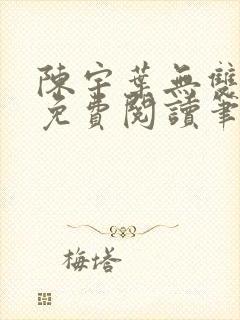 陳宇葉無雙
免費閱讀筆
梅塔